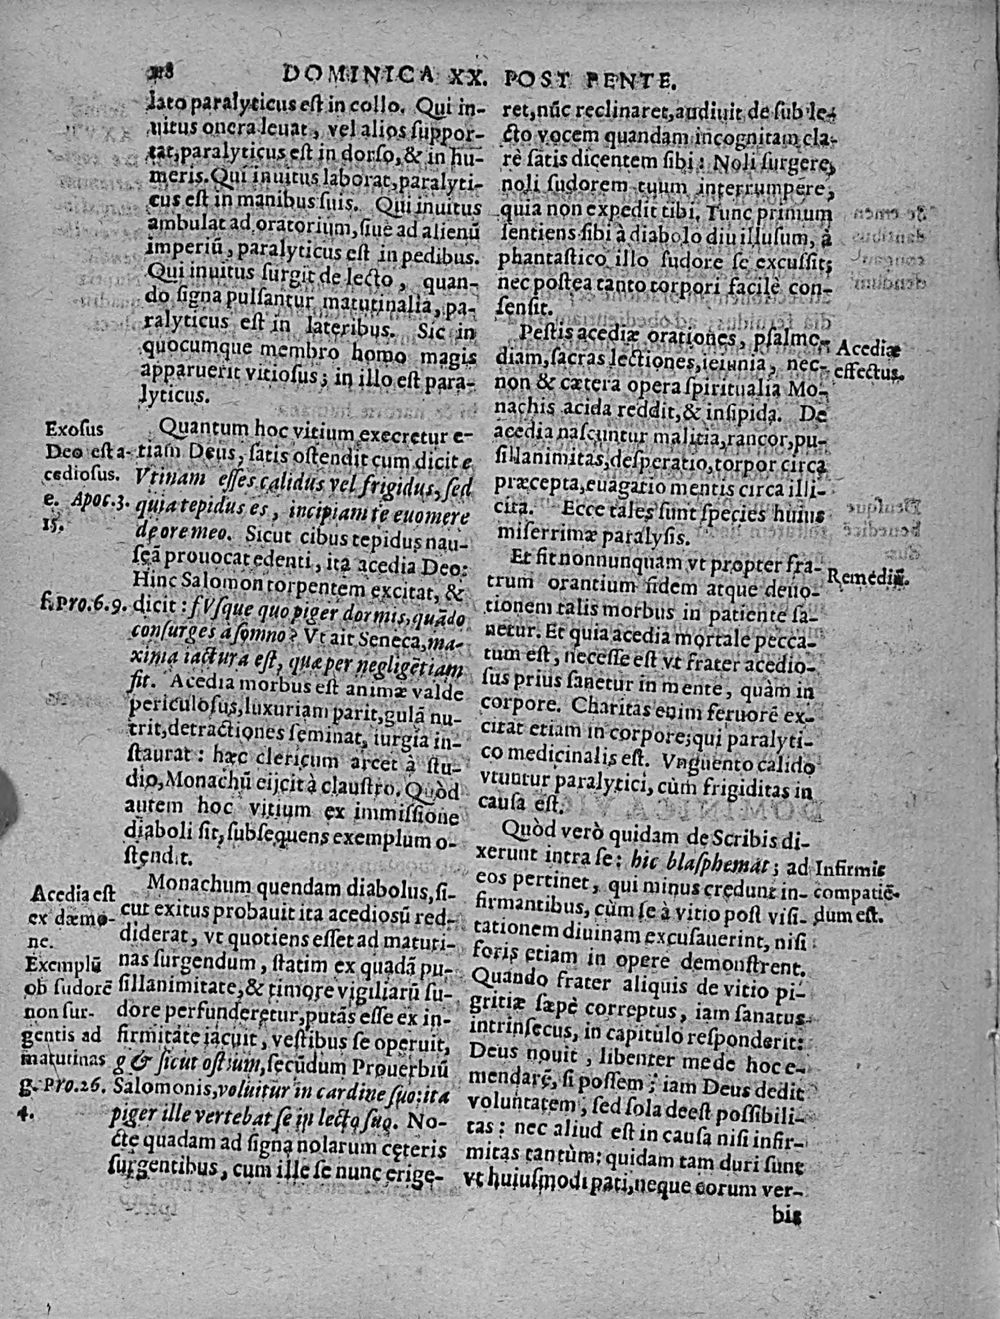 DOMINICA XX. POST PENTE.
lato paralyticus est in collo. Qui in-
uitus onera leuat, vel alios suppor-
tat, paralyticus est in dorso, & in hu-
meris. Qui inuitus laborat, paralyti-
cus est in manibus suis. Qui inuitus
ambulat ad oratorium, siue ad alienũ
imperiũ, paralyticus est in pedibus.
Qui inuitus surgit de lecto, quan-
do signa pulsantur matutinalia, pa-
ralyticus est in lateribus. Sic in
quocumque membro homo magis
apparuerit vitiosus; in illo est para-
lyticus.
Exosus
Deo est a-
cediosus.
e. Apoc. 3.
15.
Quantum hoc vitium execretur e-
tiam Deus, satis ostendit cum dicit e
Vtinam esses calidus vel frigidus, sed
quia tepidus es, incipiam te euomere
de ore meo. Sicut cibus tepidus nau-
seã prouocat edenti, ita acedia Deo:
Hinc Salomon torpentem excitat, &
f. Pro. 6. 9.
dicit: f Vsque quo piger dormis, quãdo
consurges a somno? Vt ait Seneca, ma-
xima iactura est, quæ per negligẽtiam
fit. Acedia morbus est animæ valde
periculosus, luxuriam parit, gulã nu-
trit, detractiones seminat, iurgia in-
staurat: hæc clericum arcet à stu-
dio, Monachũ eijcit à claustro. Quòd
autem hoc vitium ex immissione
diaboli sit, subsequens exemplum o-
stendit.
Acedia est
ex dæmo-
ne.
Exemplũ
ob sudorẽ
non sur-
gentis ad
matutinas
g. Pro. 26.
4.
Monachum quendam diabolus, si-
cut exitus probauit ita acediosũ red-
diderat, vt quotiens esset ad maturi-
nas surgendum, statim ex quadã pu-
sillanimitate, & timore vigiliarũ su-
dore perfunderetur, putãs esse ex in-
firmitate iacuit, vestibus se operuit,
g & sicut ostium, secũdum Prouerbiũ
Salomonis, voluitur in cardine suo: ita
piger ille vertebat se in lecto suo. No-
cte quadam ad signa nolarum cęteris
surgentibus, cum ille se nunc erige-
ret, nũc reclinaret, audiuit de sub le-
cto vocem quandam incognitam cla-
rè satis dicentem sibi: Noli surgere,
noli sudorem tuum interrumpere,
quia non expedit tibi. Tunc primum
sentiens sibi à diabolo diu illusum, à
phantastico illo sudore se excussit;
nec postea tanto torpori facilè con-
sensit.
Acediæ
effectus.
Pestis acediæ orationes, psalmo-
diam, sacras lectiones, ieiunia, nec-
non & cætera opera spiritualia Mo-
nachis acida reddit, & insipida. De
acedia nascuntur malitia, rancor, pu-
sillanimitas, desperatio, torpor circa
præcepta, euagatio mentis circa illi-
cita. Ecce tales sunt species huius
miserrimæ paralysis.
Remediũ.
Et fit nonnunquam vt propter fra-
trum orantium fidem atque deuo-
tionem talis morbus in patiente sa-
netur. Et quia acedia mortale pecca-
tum est, necesse est vt frater acedio-
sus prius sanetur in mente, quàm in
corpore. Charitas enim feruorẽ ex-
citat etiam in corpore; qui paralyti-
co medicinalis est. Vnguento calido
vtuntur paralytici, cùm frigiditas in
causa est.
Infirmis
compatiẽ-
dum est.
Quòd verò quidam de Scribis di-
xerunt intra se: hic blasphemat; ad
eos pertinet, qui minus credunt in-
firmantibus, cùm se à vitio post visi-
tationem diuinam excusauerint, nisi
foris etiam in opere demonstrent.
Quando frater aliquis de vitio pi-
gritiæ sæpè correptus, iam sanatus
intrinsecus, in capitulo responderit:
Deus nouit, libenter mede hoc e-
mendarẽ, si possem; iam Deus dedit
voluntatem, sed sola deest possibili-
tas: nec aliud est in causa nisi infir-
mitas tantùm; quidam tam duri sunt
vt huiusmodi pati, neque eorum ver-
bis